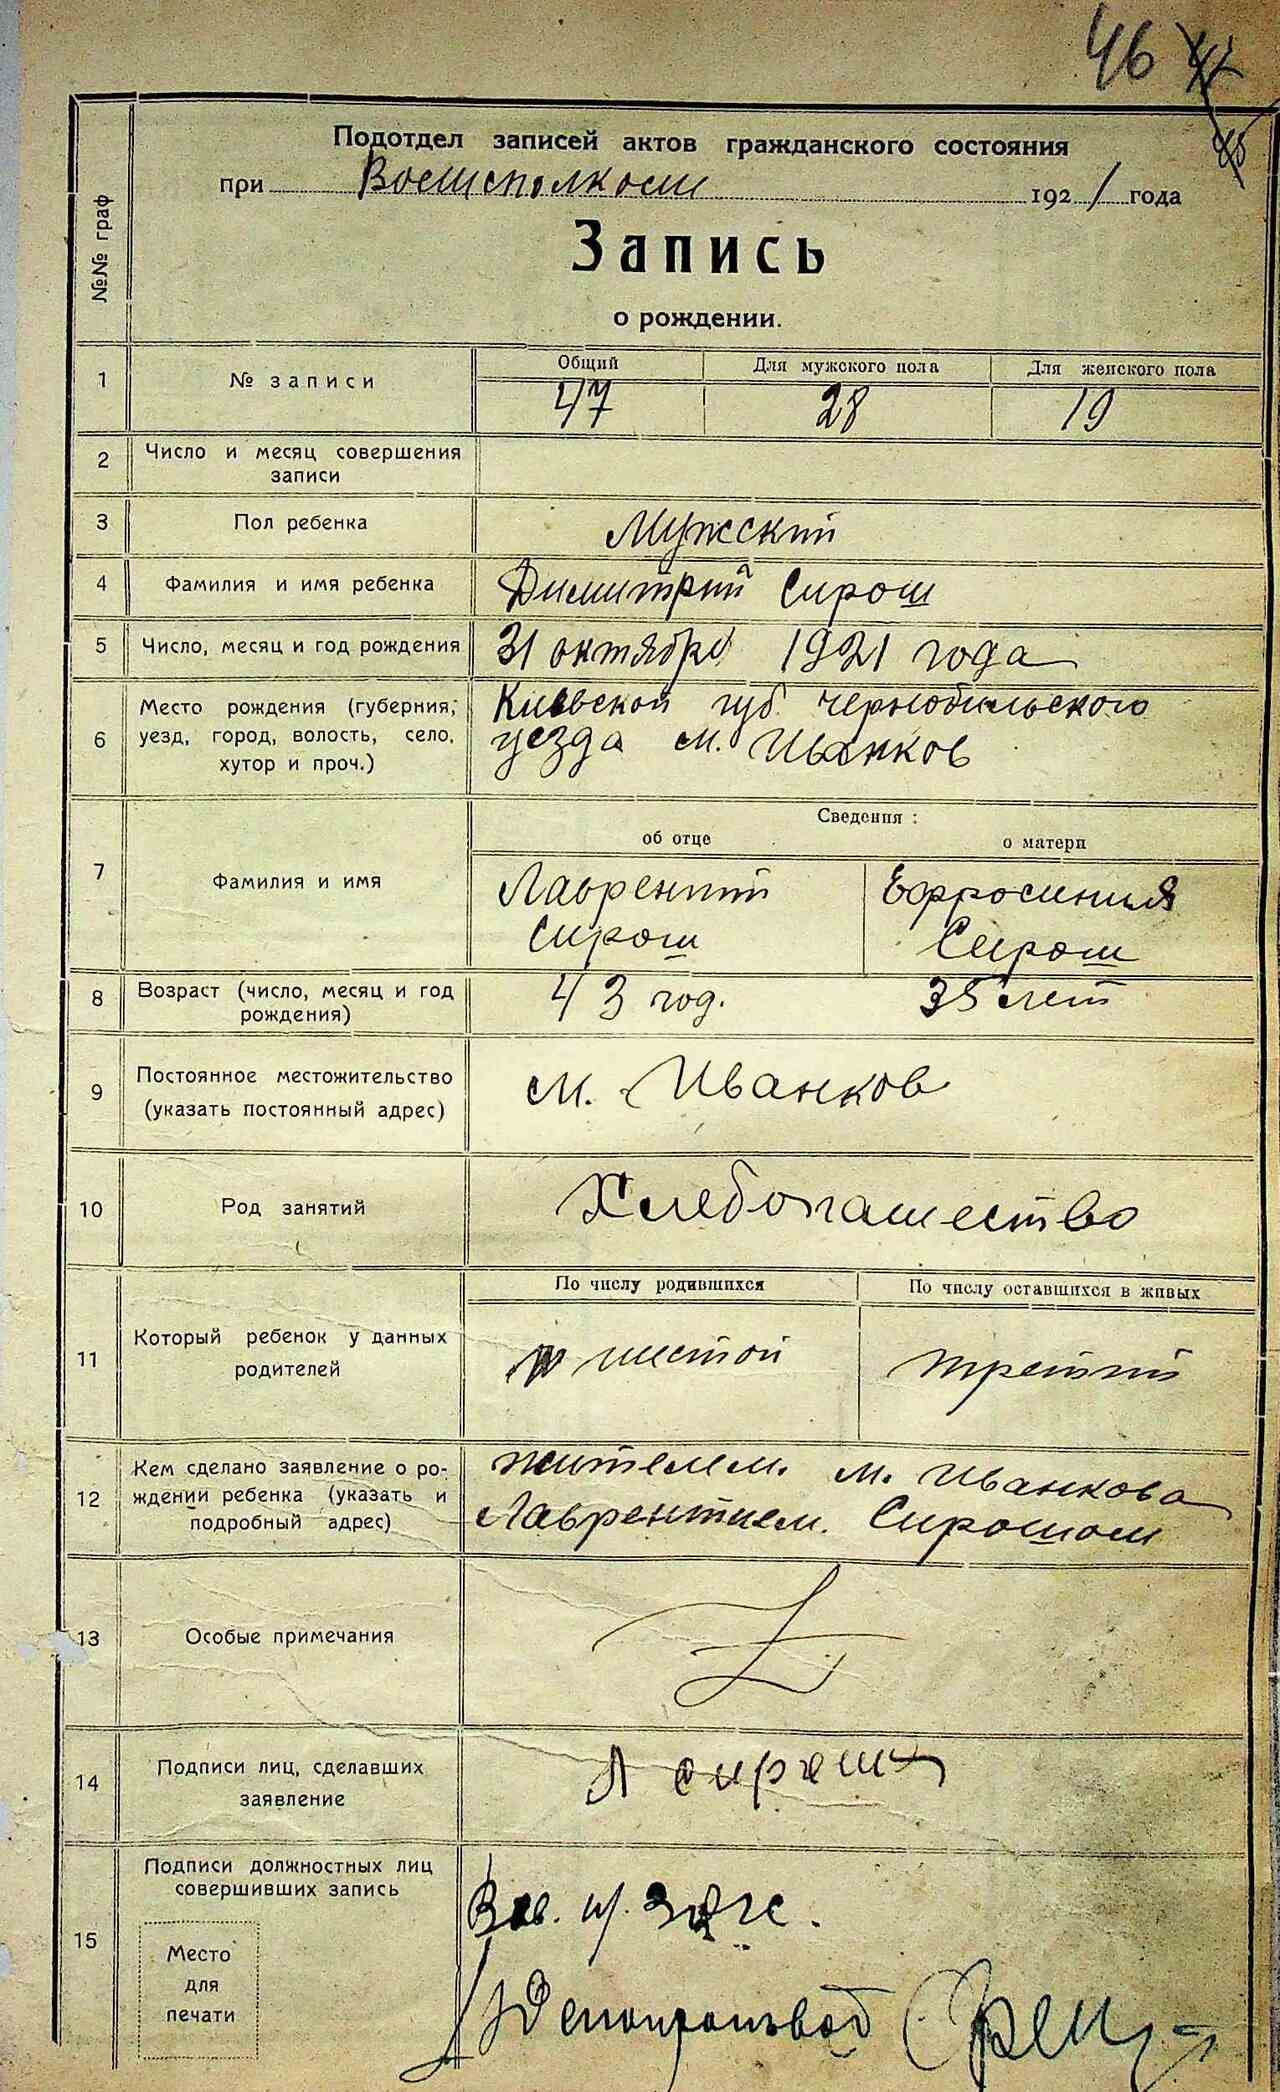 46
Подотдел записей актов гражданского состояния
при Волисполкоме 1921 года
Запись
о рождении.
№№ граф
1 № записи Общий Для мужского пола Для женского пола
47 28 19
2 Число и месяц совершения
записи
3 Пол ребенка Мужский
4 Фамилия и имя ребенка Димитрий Сирош
5 Число, месяц и год рождения 31 октября 1921 года
6 Место рождения (губерния, уезд, город, волость, село, хутор и проч.)
Киевской губ. Чернобильского
уезда м. Иванков
Сведения :
об отце о матери
7 Фамилия и имя
Лаврентий Ефросиния
Сирош Сирош
8 Возраст (число, месяц и год рождения) 43 год. 35 лет
9 Постоянное местожительство
(указать постоянный адрес)
м. Иванков
10 Род занятий Хлебопашество
По числу родившихся По числу оставшихся в живых
11 Который ребенок у данных
родителей
шестой третий
12 Кем сделано заявление о ро-
ждении ребенка (указать и
подробный адрес)
жителем м. Иванкова
Лаврентием Сирошом
13 Особые примечания
14 Подписи лиц, сделавших
заявление
Л Сирош
15 Подписи должностных лиц
совершивших запись
Зав. п/ загс.
Место
для
печати